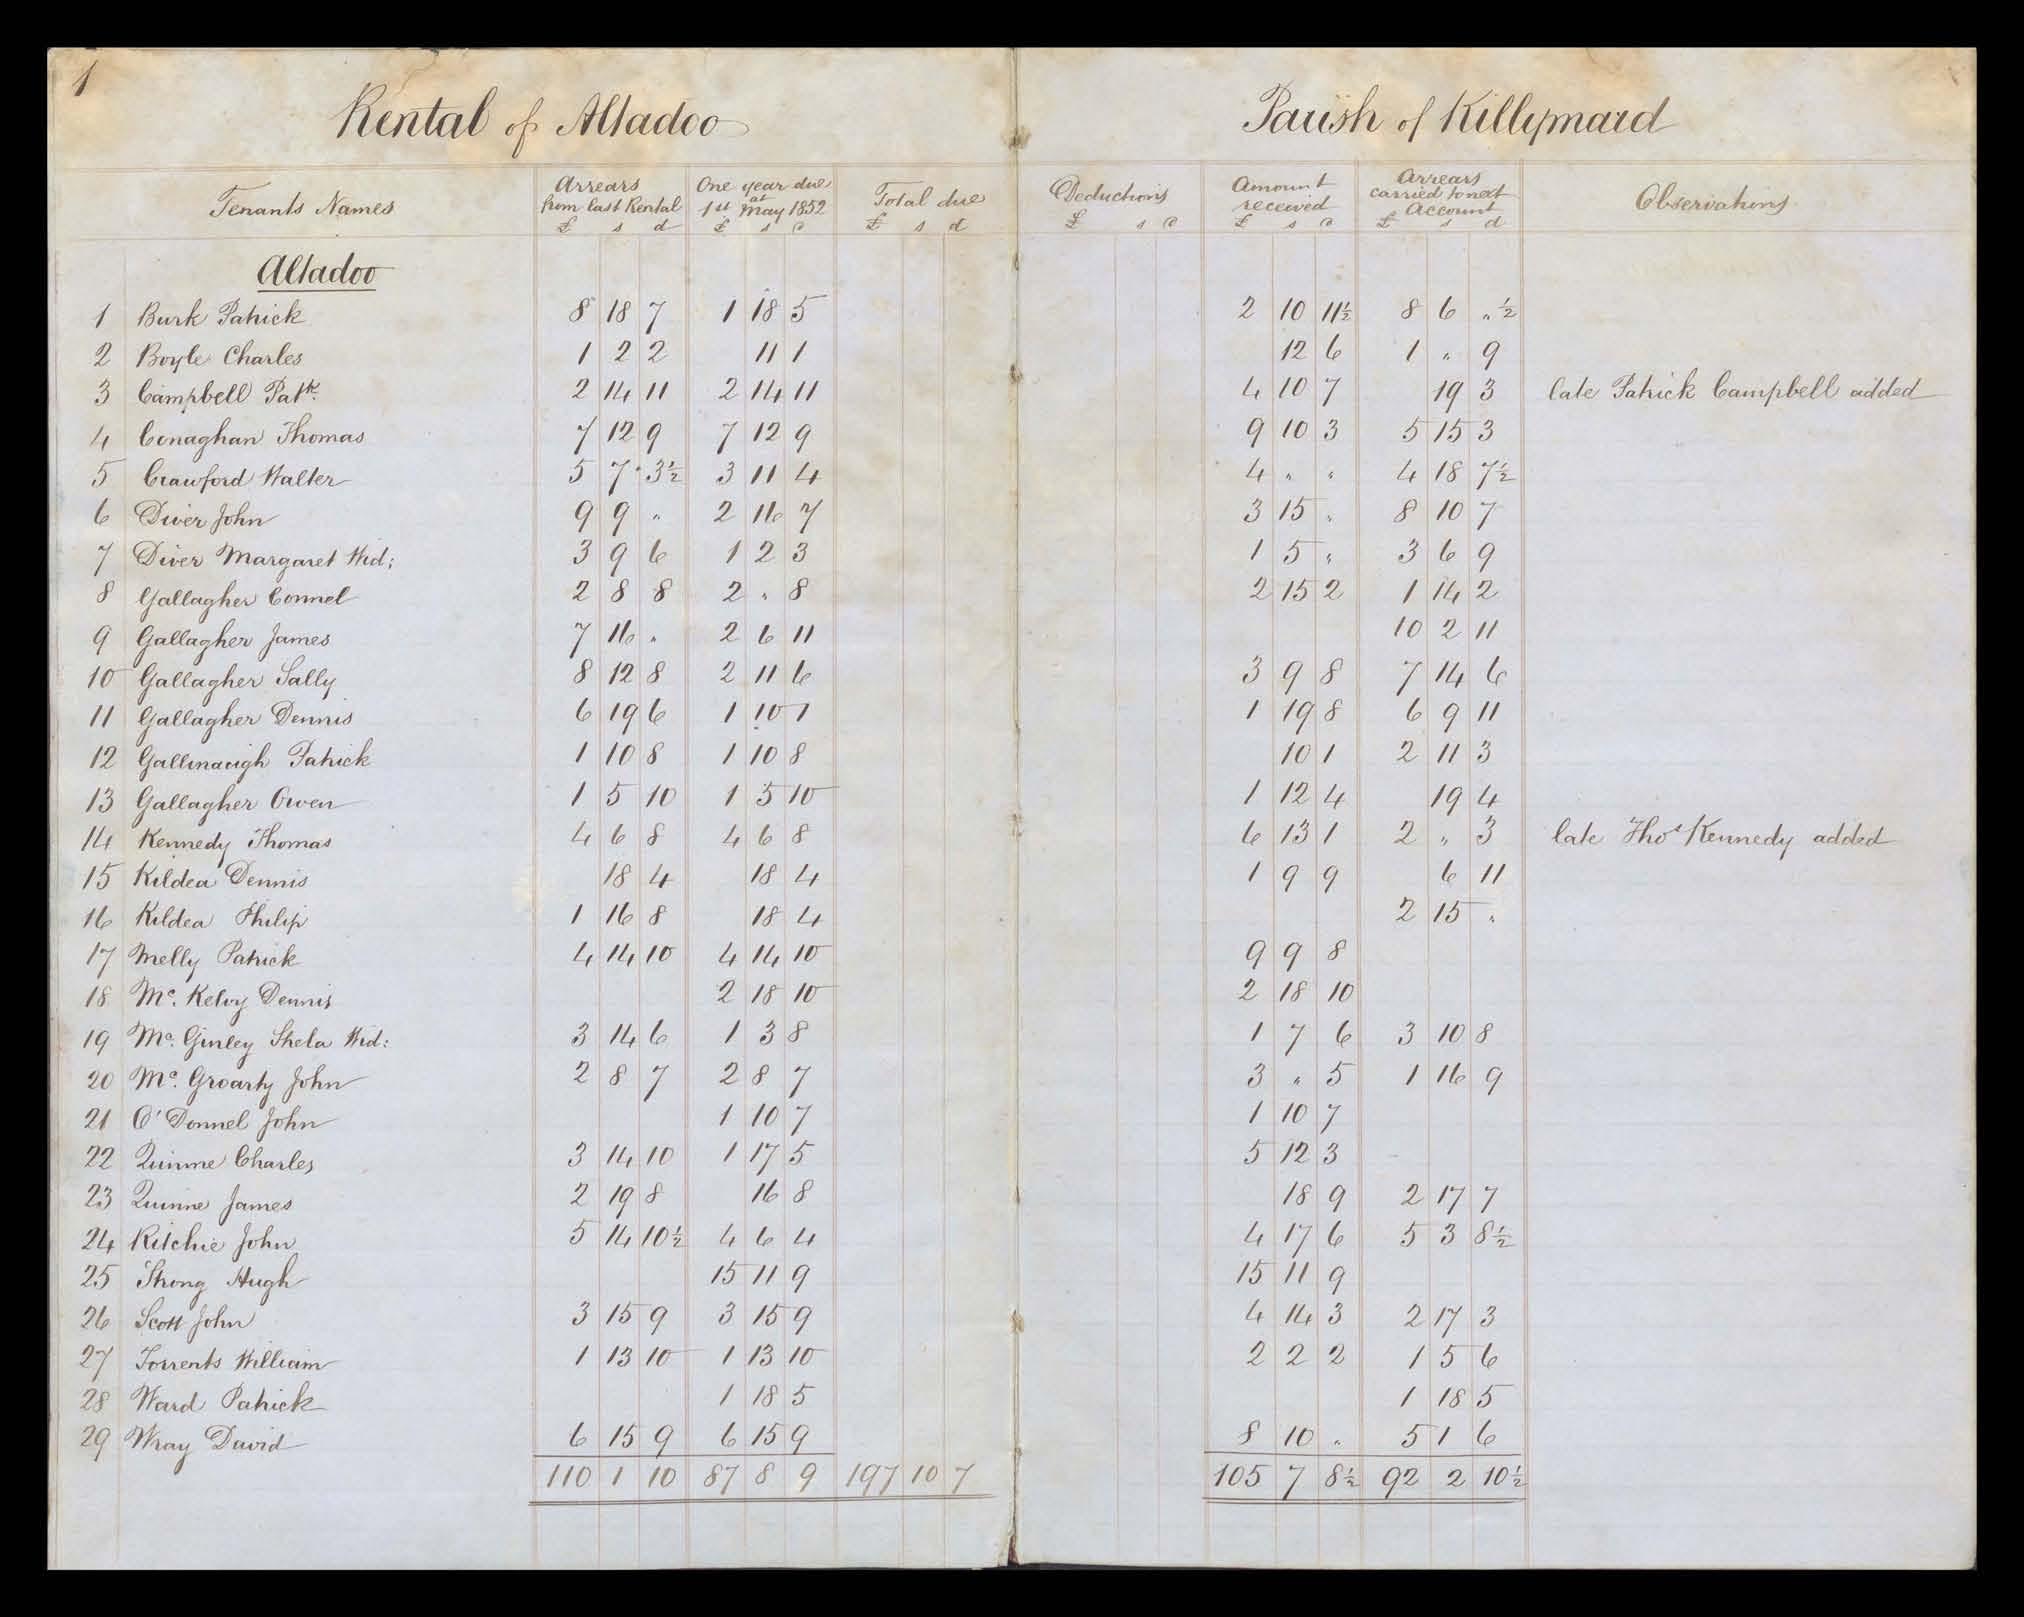 1
Rental of Altadoo Parish of Killymard
Tenants Names Arrears from last Rental £ s d One year due at 1st May 1852 £ s d Total due £ s d Deductions £ s d Amount received £ s d Arrears carried to next Account £ s d Observations
Altadoo
1 Burk Patrick 8 18 7 1 18 5 2 10 11½ 8 6 „ ½
2 Boyle Charles 1 2 2 11 1 12 6 1 „ 9
3 Campbell Patk. 2 14 11 2 14 11 4 10 7 19 3 late Patrick Campbell added
4 Conaghan Thomas 7 12 9 7 12 9 9 10 3 5 15 3
5 Crawford Walter 5 7 3½ 3 11 4 4 „ „ 4 18 7½
6 Diver John 9 9 „ 2 16 7 3 15 „ 8 10 7
7 Diver Margaret Wid: 3 9 6 1 2 3 1 5 „ 3 6 9
8 Gallagher Connel 2 8 8 2 „ 8 2 15 2 1 14 2
9 Gallagher James 7 16 „ 2 6 11 10 2 11
10 Gallagher Sally 8 12 8 2 11 6 3 9 8 7 14 6
11 Gallagher Dennis 6 19 6 1 10 1 1 19 8 6 9 11
12 Gallinaugh Patrick 1 10 8 1 10 8 10 1 2 11 3
13 Gallagher Owen 1 5 10 1 5 10 1 12 4 19 4
14 Kennedy Thomas 4 6 8 4 6 8 6 13 1 2 „ 3 late Thos Kennedy added
15 Kildea Dennis 18 4 18 4 1 9 9 6 11
16 Kildea Philip 1 16 8 18 4 2 15 „
17 Melly Patrick 4 14 10 4 14 10 9 9 8
18 Mc. Kelvy Dennis 2 18 10 2 18 10
19 Mc. Ginley Shela Wid: 3 14 6 1 3 8 1 7 6 3 10 8
20 Mc. Groarty John 2 8 7 2 8 7 3 „ 5 1 16 9
21 O'Donnel John 1 10 7 1 10 7
22 Quinne Charles 3 14 10 1 17 5 5 12 3
23 Quinne James 2 19 8 16 8 18 9 2 17 7
24 Ritchie John 5 14 10½ 4 6 4 4 17 6 5 3 8½
25 Strong Hugh 15 11 9 15 11 9
26 Scott John 3 15 9 3 15 9 4 14 3 2 17 3
27 Torrents William 1 13 10 1 13 10 2 2 2 1 5 6
28 Ward Patrick 1 18 5 1 18 5
29 Wray David 6 15 9 6 15 9 8 10 „ 5 1 6
110 1 10 87 8 9 197 10 7 105 7 8½ 92 2 10½